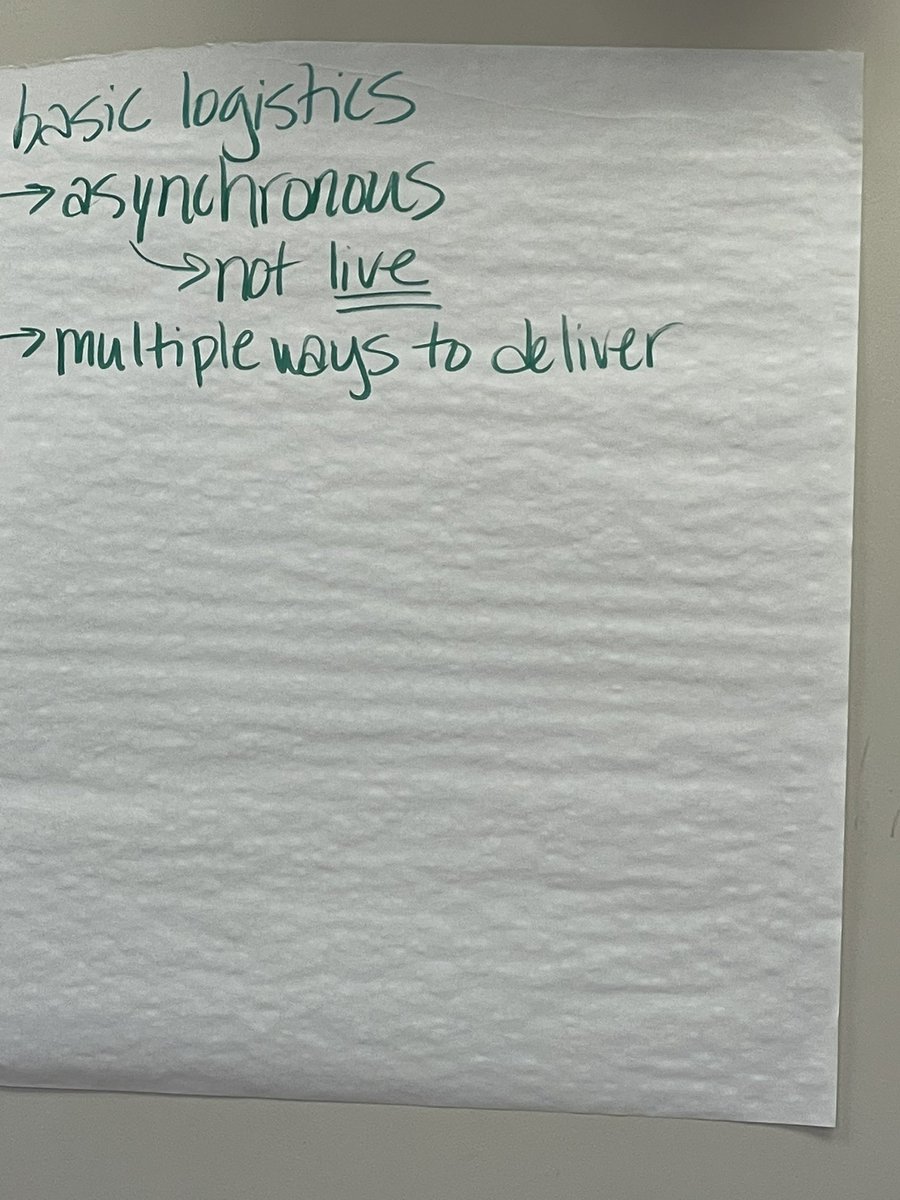 basic logistics
→ asynchronous
→ not live
→ multiple ways to deliver